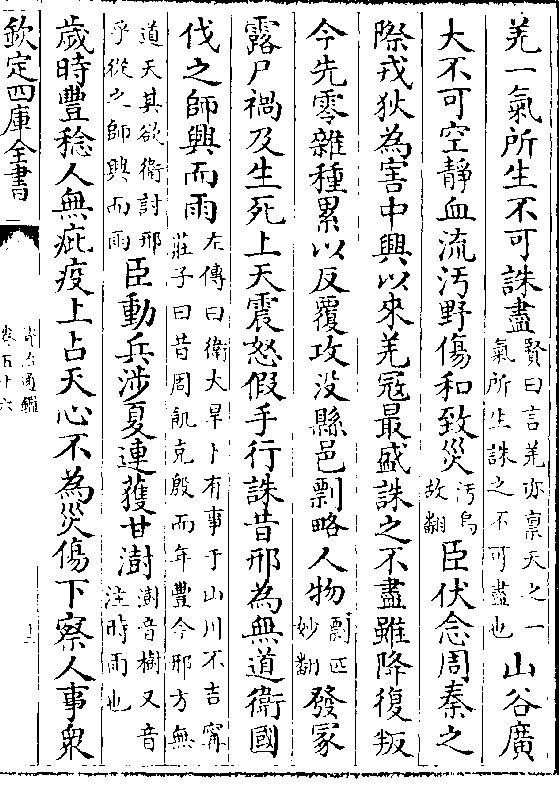 羌一氣所生不可誅盡賢曰言羌亦禀天之一氣所生誅之不可盡也山谷廣
大不可空靜血流汚野傷和致災汚烏故翻臣伏念周秦之
際戎狄為害中興以來羌寇最盛誅之不盡雖降復叛
今先零雜種累以反覆攻没縣邑剽略人物剽匹妙翻發冢
露尸禍及生死上天震怒假手行誅昔邢為無道衛國
伐之師興而雨左傳曰衛大旱卜有事于山川不吉甯莊子曰昔周飢克殷而年豐今邢方無
道天其欲衛討邢乎從之師興而雨臣動兵涉夏連獲甘澍澍音樹又音注時雨也
歲時豐稔人無疵疫上占天心不為災傷下察人事衆
欽定四庫全書
資治通鑑
卷五十六